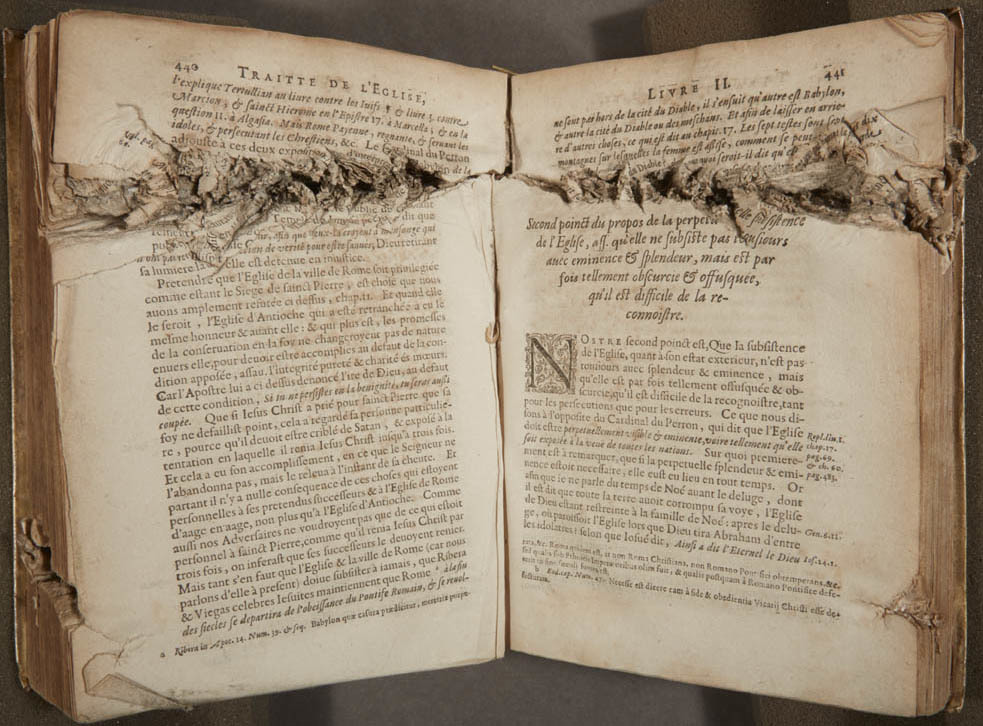 440
TRAITTÉ DE L'EGLISE,
l'explique Tertullian au livre contre les Iuifs, & livre 3. contre
Marcion, & sainct Hierome en l'Epistre 17. à Marcella, & en la
question 11. à Algasia. Mais Rome Payenne, regnante, & servant les
idoles, & persecutant les Chrestiens, &c. Le Cardinal du Perron
adjouste à ces deux
de la
que ceux-là croyent à mensonge qui
de verité pour estre sauuez, Dieu retirant
sa lumiere là où elle est detenue en iniustice.
Pretendre que l'Eglise de la ville de Rome soit privilegiée
comme estant le Siege de sainct Pierre, est chose que nous
auons amplement refutée ci dessus, chap. 11. Et quand elle
le seroit, l'Eglise d'Antioche qui a esté retranchée a eu le
mesme honneur & auant elle: & qui plus est, les promesses
de la conseruation en la foy ne changeroyent pas de nature
enuers elle, pour deuoir estre accomplies au defaut de la con-
dition apposée, assau. l'integrité pureté & charité és mœurs.
Car l'Apostre lui a ci dessus denoncé l'ire de Dieu, au defaut
de cette condition, Si tu ne persistes en la benignité, tu seras aussi
coupée. Que si Iesus Christ a prié pour sainct Pierre que sa
foy ne defaillist point, cela a regardé sa personne particulie-
re, pource qu'il deuoit estre criblé de Satan, & exposé à la
tentation en laquelle il renia Iesus Christ jusqu'à trois fois.
Et cela a eu son accomplissement, en ce que le Seigneur ne
l'abandonna pas, mais le releua à l'instant de sa cheute. Et
partant il n'y a nulle consequence de ces choses qui estoyent
personnelles à ses pretendus successeurs & à l'Eglise de Rome
d'aage en aage, non plus qu'à l'Eglise d'Antioche. Comme
aussi nos Adversaires ne voudroyent pas que de ce qui estoit
personnel à sainct Pierre, comme qu'il renia Iesus Christ par
trois fois, on inferast que ses successeurs le deuoyent renier.
Mais tant s'en faut que l'Eglise & la ville de Rome (car nous
parlons d'elle à present) doiue subsister à iamais, que Ribera
& Viegas celebres Iesuites maintiennent que Rome a à la fin
des siecles se departira de l'obeissance du Pontife Romain, & se reuol-
a Ribera in Apoc. 14. Num. 39. & seq. Babylon quæ casura prædicitur, meretrix purpu-
LIVRE II.
441
ne sont pas hors de la cité du Diable, il s'ensuit qu'autre est Babylon,
& autre la cité du Diable ou des meschans. Et afin de laisser en arrie-
re d'autres choses, ce qui est dit au chapit. 17. Les sept testes sont sept
montagnes sur lesquelles la femme est assise, comment se peut
seroit-il dit qu'
Second poinct du propos de la perpetu elle subsistence
de l'Eglise, ass. qu'elle ne subsiste pas tousiours
auec eminence & splendeur, mais est par
fois tellement obscurcie & offusquée,
qu'il est difficile de la re-
connoistre.
NOSTRE second poinct est, Que la subsistence
de l'Eglise, quant à son estat exterieur, n'est pas
toujours auec splendeur & eminence, mais
qu'elle est par fois tellement offusquée & ob-
scurcie, qu'il est difficile de la recognoistre, tant
pour les persecutions que pour les erreurs. Ce que nous di-
sons à l'opposite du Cardinal du Perron, qui dit que l'Eglise
doit estre perpetuellement visible & eminente, voire tellement qu'elle
soit exposée à la veuë de toutes les nations. Sur quoi premiere-
ment est à remarquer, que si la perpetuelle splendeur & emi-
nence estoit necessaire, elle eust eu lieu en tout temps. Or
afin que je ne parle du temps de Noé auant le deluge, dont
il est dit que toute la terre auoit corrompu sa voye, l'Eglise
de Dieu estant restreinte à la famille de Noé: apres le delu-
ge, où paroissoit l'Eglise lors que Dieu tira Abraham d'entre
les idolatres? selon que Iosué dit, Ainsi a dit l'Eternel le Dieu
Repl. liu. 1.
chap. 17.
pag. 69.
& ch. 60.
pag. 483.
Gen. 6. 11.
Ios. 24. 2.
b Eod. cap. Num. 47. Necesse est dicere eam à fide & obedientia Vicarij Christi esse de-
fecturam.